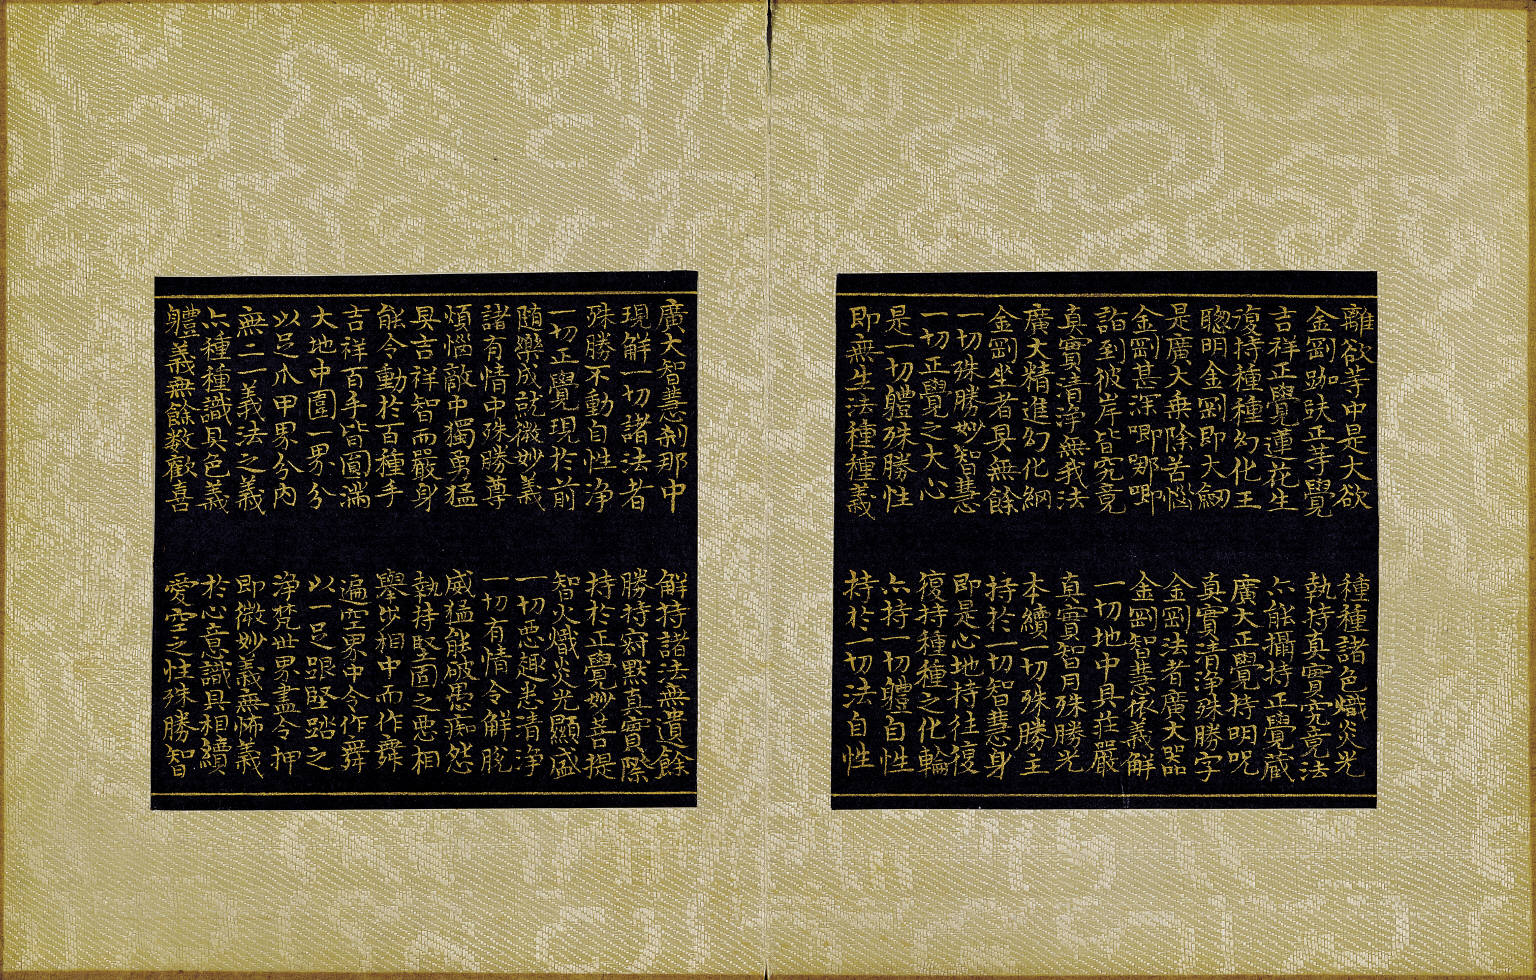 離欲等中是大欲　種種諸色熾炎光
金剛跏趺正等覺　執持真實究竟法
吉祥正覺蓮花生　亦能攝持正覺藏
復持種種幻化王　廣大正覺持明呪
聰明金剛即大劒　真實清淨殊勝字
是廣大乘除苦惱　金剛法者廣大器
金剛甚深唧哪唧　金剛智慧依義解
詣到彼岸皆究竟　一切地中具莊嚴
真實清淨無我法　真實智月殊勝光
廣大精進幻化網　本續一切殊勝主
金剛坐者具無餘　持於一切智慧身
一切殊勝妙智慧　即是心地持往復
一切正覺之大心　復持種種之化輪
是一切體殊勝性　亦持一切體自性
即無生法種種義　持於一切法自性
廣大智慧剎那中　解持諸法無遺餘
現解一切諸法者　勝持寂默真實際
殊勝不動自性淨　持於正覺妙菩提
一切正覺現於前　智火熾炎光顯盛
隨樂成就微妙義　一切惡趣悉清淨
諸有情中殊勝尊　一切有情令解脫
煩惱敵中獨勇猛　威猛能破愚痴怨
具吉祥智而嚴身　執持堅固之惡相
能令動於百種手　舉步相中而作舞
吉祥百手皆圓滿　遍空界中令作舞
大地中圍一界分　以一足跟堅踏之
以足爪甲界分內　淨梵世界盡令押
無二一義法之義　即微妙義無怖義
亦種種識具色義　於心意識具相續
體義無餘数歡喜　愛空之性殊勝智